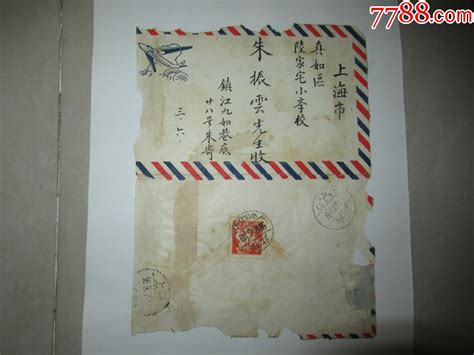 上海市
真如區
陸家宅小學校
朱振雲先生收
鎮江九如巷底
廿八号朱寄
三.六.
7788.com